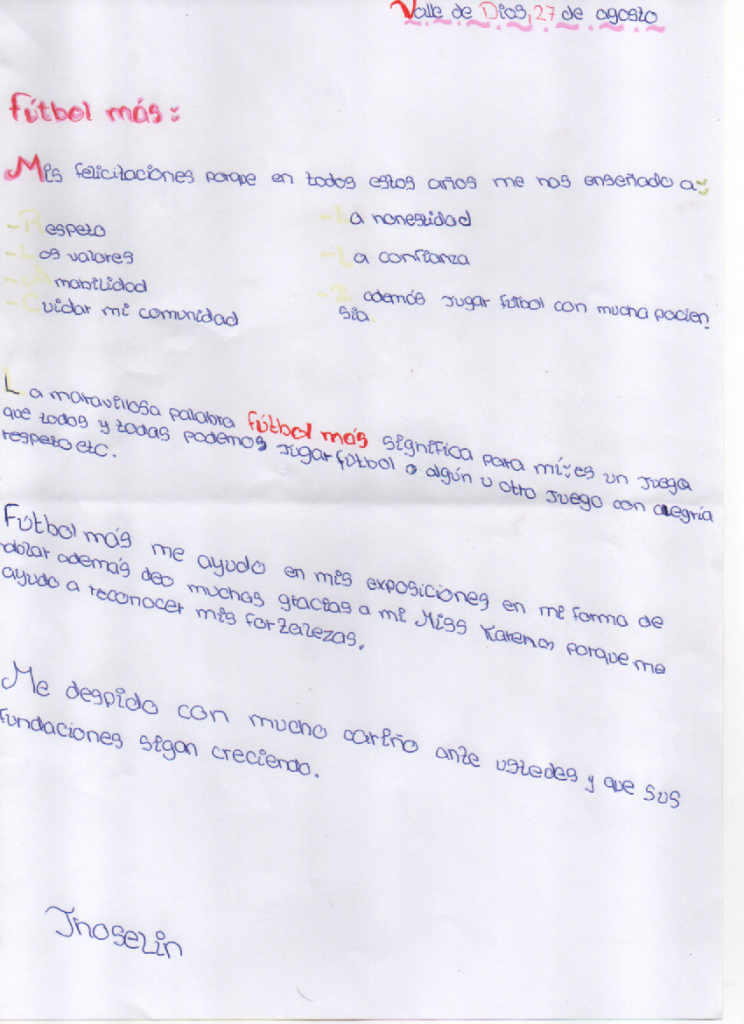 Valle de Dios, 27 de agosto
Fútbol más:
Mis felicitaciones porque en todos estos años me nos enseñado a:
- Respeto
- Los valores
- Amabilidad
- Cuidar mi comunidad
- La honestidad
- La confianza
- Y además jugar fútbol con mucha pacien
sia
La maravillosa palabra fútbol más significa para mí: es un juega
que todos y todas podemos jugar fútbol o algún u otro juego con alegría
respeto etc.
Fútbol más me ayudo en mis exposiciones en mi forma de
ablar además deo muchas gracias a mi Miss Karena porque me
ayudo a reconocer mis fortalezas.
Me despido con mucho cariño ante ustedes y que sus
fundaciones sigan creciendo.
Jhoselin